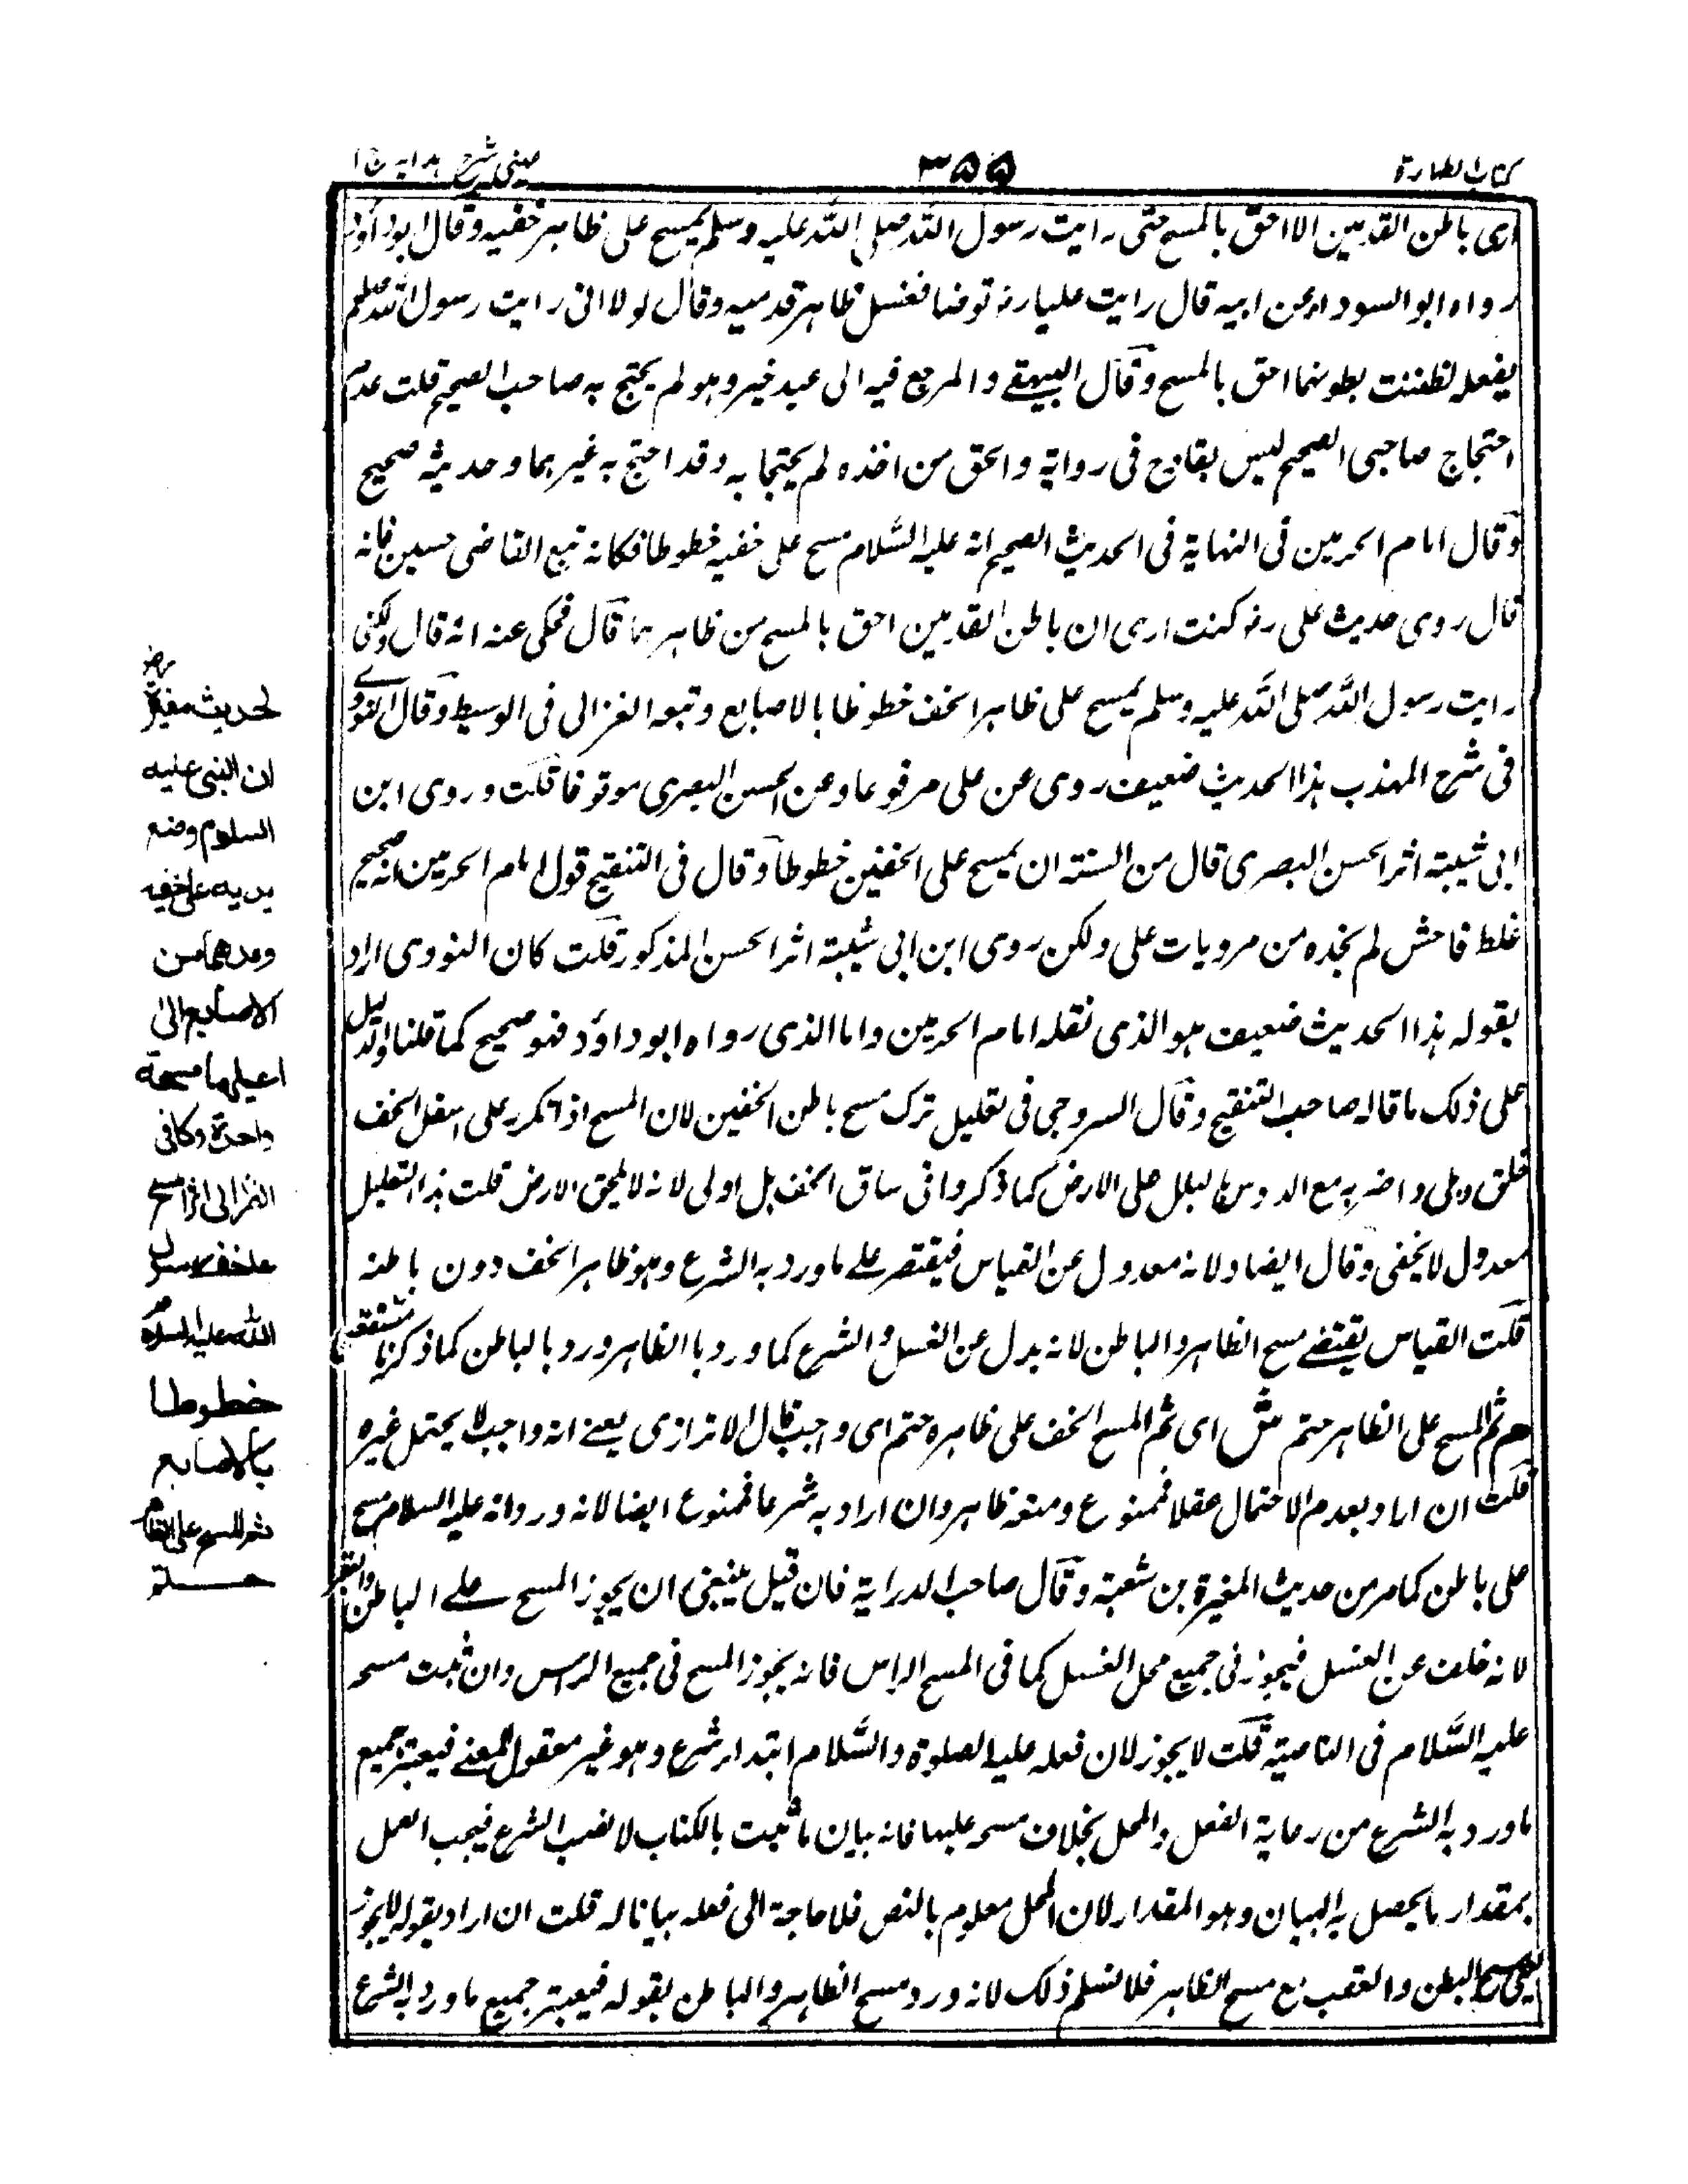 كتاب الطهارة
٣٥٥
عينى شرح هدايه ج ا
ارى باطن القدمين الا احق بالمسح حتى رايت رسول الله صلى الله عليه وسلم يمسح على ظاهر خفيه وقال ابو داؤد
رواه ابو السوداء عن ابيه قال رايت عليا رضه توضا فغسل ظاهر قدميه وقال لولا انى رايت رسول الله صلعم
يفعله لظننت بطونهما احق بالمسح وقال البيهقے والمرجع فيه الى عبد خير وهو لم يحتج به صاحب الصحيح قلت عدم
احتجاج صاحبى الصحيح ليس بقادح فى رواية والحق من اخذه لم يحتجا به وقد احتج به غيرهما وحديثه صحيح
وقال امام الحرمين فى النهاية فى الحديث الصحيح انه عليه السلام مسح على خفيه خطوطا فكانه تبع القاضى حسين فانه
قال روى حديث على رضه كنت ارى ان باطن القدمين احق بالمسح من ظاهرهما قال فحكى عنه انه قال ولكنى
رايت رسول الله صلى الله عليه وسلم يمسح على ظاهر الخف خطوطا بالاصابع وتبعه الغزالى فى الوسيط وقال النووے
فى شرح المهذب هذا الحديث ضعيف روى عن على مرفوعا وعن الحسن البصرى موقوفا قلت وروى ابن
ابى شيبة اثر الحسن البصرى قال من السنة ان يمسح على الخفين خطوطا وقال فى التنقيح قول امام الحرمين انه صحيح
غلط فاحش لم نجده من مرويات على ولكن روى ابن ابى شيبة اثر الحسن المذكور قلت كان النووى اراد
بقوله هذا الحديث ضعيف هو الذى نقله امام الحرمين واما الذى رواه ابو داؤد فهو صحيح كما قلنا والدليل
على ذلك ما قاله صاحب التنقيح وقال السروجى فى تعليل ترك مسح باطن الخفين لان المسح اذا تكرر على اسفل الخف
خلق وبلى واضر به مع الدوس بالبلل على الارض كما ذكروا فى ساق الخف بل اولى لانه لا يلحق الارض قلت هذا التعليل
معدول لا يخفى وقال ايضا ولانه معدول عن القياس فيقتصر علے ما ورد به الشرع وهو ظاهر الخف دون باطنه
قلت القياس يقتضے مسح الظاهر والباطن لانه بدل عن الغسل والشرع كما ورد با الظاهر ورد بالباطن كما ذكرنا
هم ثم المسح على الظاهر حتم ش اى ثم المسح الخف على ظاهره حتم اى واجب قال الاترازى يعنے انه واجب لا يحتمل غيره
قلت ان اراد بعدم الاحتمال عقلا فممنوع ومنعه ظاهر وان اراد به شرعا فممنوع ايضا لانه ورد انه عليه السلام مسح
على باطن كما مر من حديث المغيرة بن شعبة وقال صاحب الدراية فان قيل ينبغى ان يجوز المسح علے الباطن والعقب
لانه خلف عن الغسل فيجوز فى جميع محل الغسل كما فى المسح الراس فانه يجوز المسح فى جميع الراس وان ثبت مسحه
عليه السلام فى الناصية قلت لا يجوز لان فعله عليه الصلوة والسلام ابتداء شرع وهو غير معقول المعنے فيعتبر جميع
ما ورد به الشرع من رعاية الفعل والمحل بخلاف مسحه عليها فانه بيان ما ثبت بالكتاب لا نصب الشرع فيجب العمل
بمقدار ما يحصل به البيان وهو المقدار لان المحل معلوم بالنص فلا حاجة الى فعله بيانا له قلت ان اراد بقوله لا يجوز
البطن والعقب مع مسح الظاهر فلا نسلم ذلك لانه ورد مسح الظاهر والباطن بقوله فيعتبر جميع ما ورد به الشرع
لحديث مغيرة رضہ
ان النبى عليه
السلام وضع
يديه على خفيه
ومدهما من
الاصابع الى
اعليهما مسحة
واحدة وكانى
انظر الى اثر المسح
على خف رسول
الله عليه السلام
خطوطا
بالاصابع
ثم المسح على الظاهر
حتم